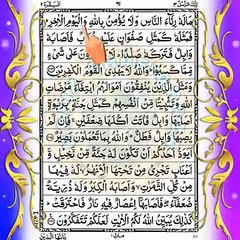 مَالَهٗ رِئَآءَ النَّاسِ وَلَا يُؤْمِنُ بِاللّٰهِ وَالْيَوْمِ الْاٰخِرِؕ
فَمَثَلُهٗ كَمَثَلِ صَفْوَانٍ عَلَيْهِ تُرَابٌ فَاَصَابَهٗ
وَابِلٌ فَتَرَكَهٗ صَلْدًاؕ لَا يَقْدِرُوْنَ عَلٰى شَىْءٍ
مِّمَّا كَسَبُوْاؕ وَاللّٰهُ لَا يَهْدِى الْقَوْمَ الْكٰفِرِيْنَ
وَمَثَلُ الَّذِيْنَ يُنْفِقُوْنَ اَمْوَالَهُمُ ابْتِغَآءَ مَرْضَاتِ
اللّٰهِ وَتَثْبِيْتًا مِّنْ اَنْفُسِهِمْ كَمَثَلِ جَنَّةٍۭ بِرَبْوَةٍ
اَصَابَهَا وَابِلٌ فَاٰتَتْ اُكُلَهَا ضِعْفَيْنِۚ فَاِنْ لَّمْ
يُصِبْهَا وَابِلٌ فَطَلٌّؕ وَاللّٰهُ بِمَا تَعْمَلُوْنَ بَصِيْرٌ
اَيَوَدُّ اَحَدُكُمْ اَنْ تَكُوْنَ لَهٗ جَنَّةٌ مِّنْ نَّخِيْلٍ وَّ
اَعْنَابٍ تَجْرِىْ مِنْ تَحْتِهَا الْاَنْهٰرُۙ لَهٗ فِيْهَا
مِنْ كُلِّ الثَّمَرٰتِۙ وَاَصَابَهُ الْكِبَرُ وَلَهٗ ذُرِّيَّةٌ
ضُعَفَآءُۖ فَاَصَابَهَاۤ اِعْصَارٌ فِيْهِ نَارٌ فَاحْتَرَقَتْؕ
كَذٰلِكَ يُبَيِّنُ اللّٰهُ لَكُمُ الْاٰيٰتِ لَعَلَّكُمْ تَتَفَكَّرُوْنَ